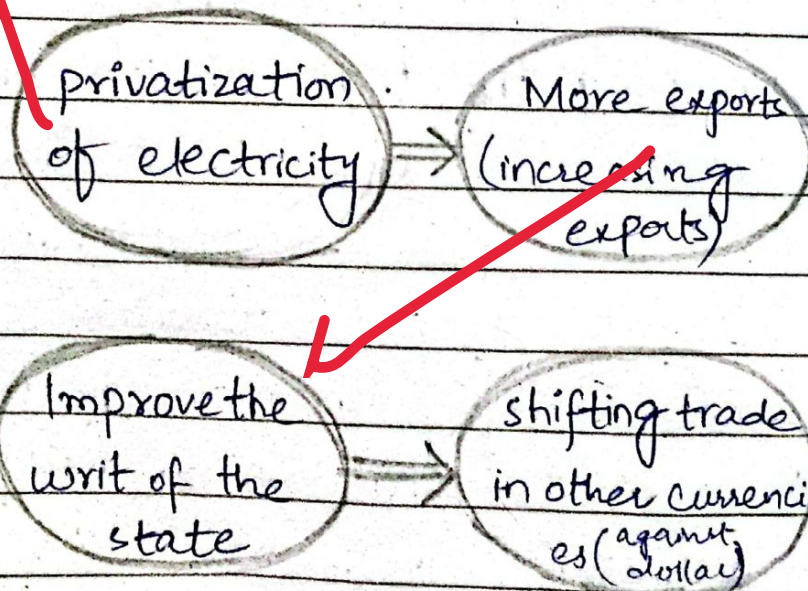 privatization
of electricity
More exports
(increasing
exports)
Improve the
writ of the
state
shifting trade
in other currenci
es (against
dollar)